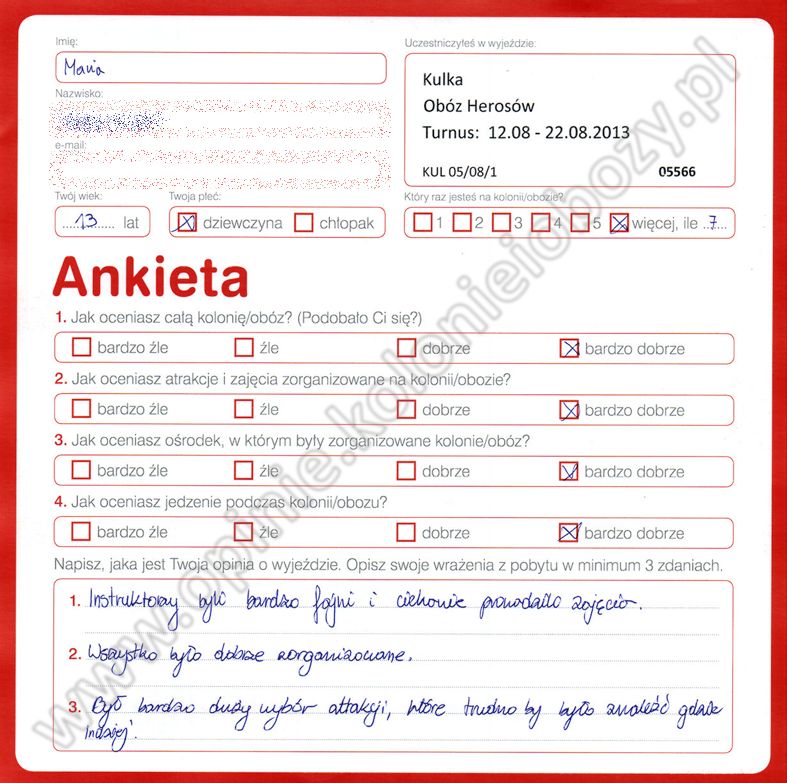 Imię:
Maria
Uczestniczyłeś w wyjeździe:
Kulka
Obóz Herosów
Turnus: 12.08 - 22.08.2013
KUL 05/08/1 05566
Nazwisko:
e-mail:
Twój wiek:
13 lat
Twoja płeć:
dziewczyna chłopak
Który raz jesteś na kolonii/obozie?
1 2 3 4 5 więcej, ile 7
Ankieta
1. Jak oceniasz całą kolonię/obóz? (Podobało Ci się?)
bardzo źle źle dobrze bardzo dobrze
2. Jak oceniasz atrakcje i zajęcia zorganizowane na kolonii/obozie?
bardzo źle źle dobrze bardzo dobrze
3. Jak oceniasz ośrodek, w którym były zorganizowane kolonie/obóz?
bardzo źle źle dobrze bardzo dobrze
4. Jak oceniasz jedzenie podczas kolonii/obozu?
bardzo źle źle dobrze bardzo dobrze
Napisz, jaka jest Twoja opinia o wyjeździe. Opisz swoje wrażenia z pobytu w minimum 3 zdaniach.
1. Instruktorzy byli bardzo fajni i ciekawie prowadzili zajęcia.
2. Wszystko było dobrze zorganizowane.
3. Był bardzo duży wybór attakcji, które trudno by było znaleźć gdzie
indziej.
www.opinie.kolonieiobozy.pl